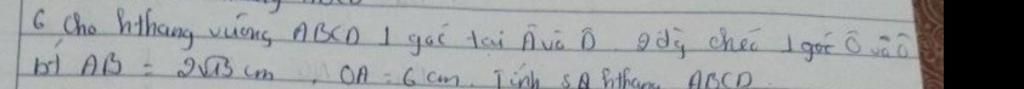 6 Cho hthang vuông ABCD ⊥ góc tại Â và D̂. 2 đg chéo ⊥ góc Ô và Ô
bt AB = 2√13 cm, OA = 6 cm. Tính S hthang ABCD.